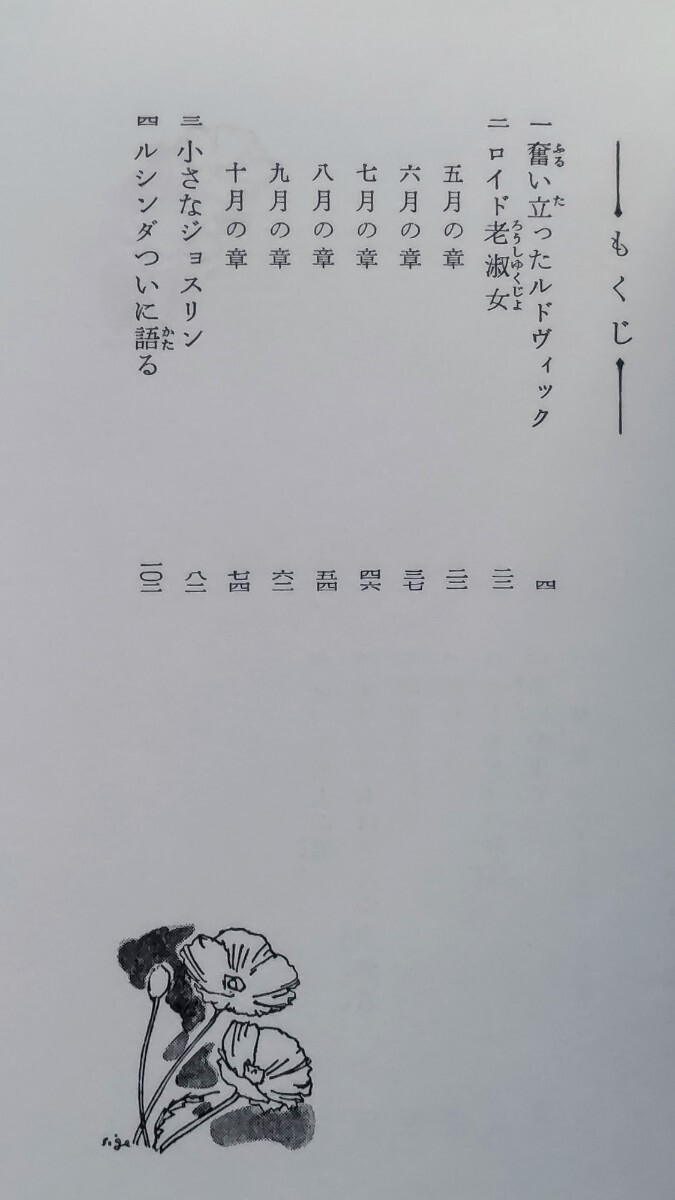 もくじ
ふる た
一 奮い立ったルドヴィック 四
ろうしゅくじょ
二 ロイド老淑女 二三
五月の章 二三
六月の章 三七
七月の章 四六
八月の章 五四
九月の章 六二
十月の章 七四
三 小さなジョスリン 八二
かた
四 ルシンダついに語る 一〇二